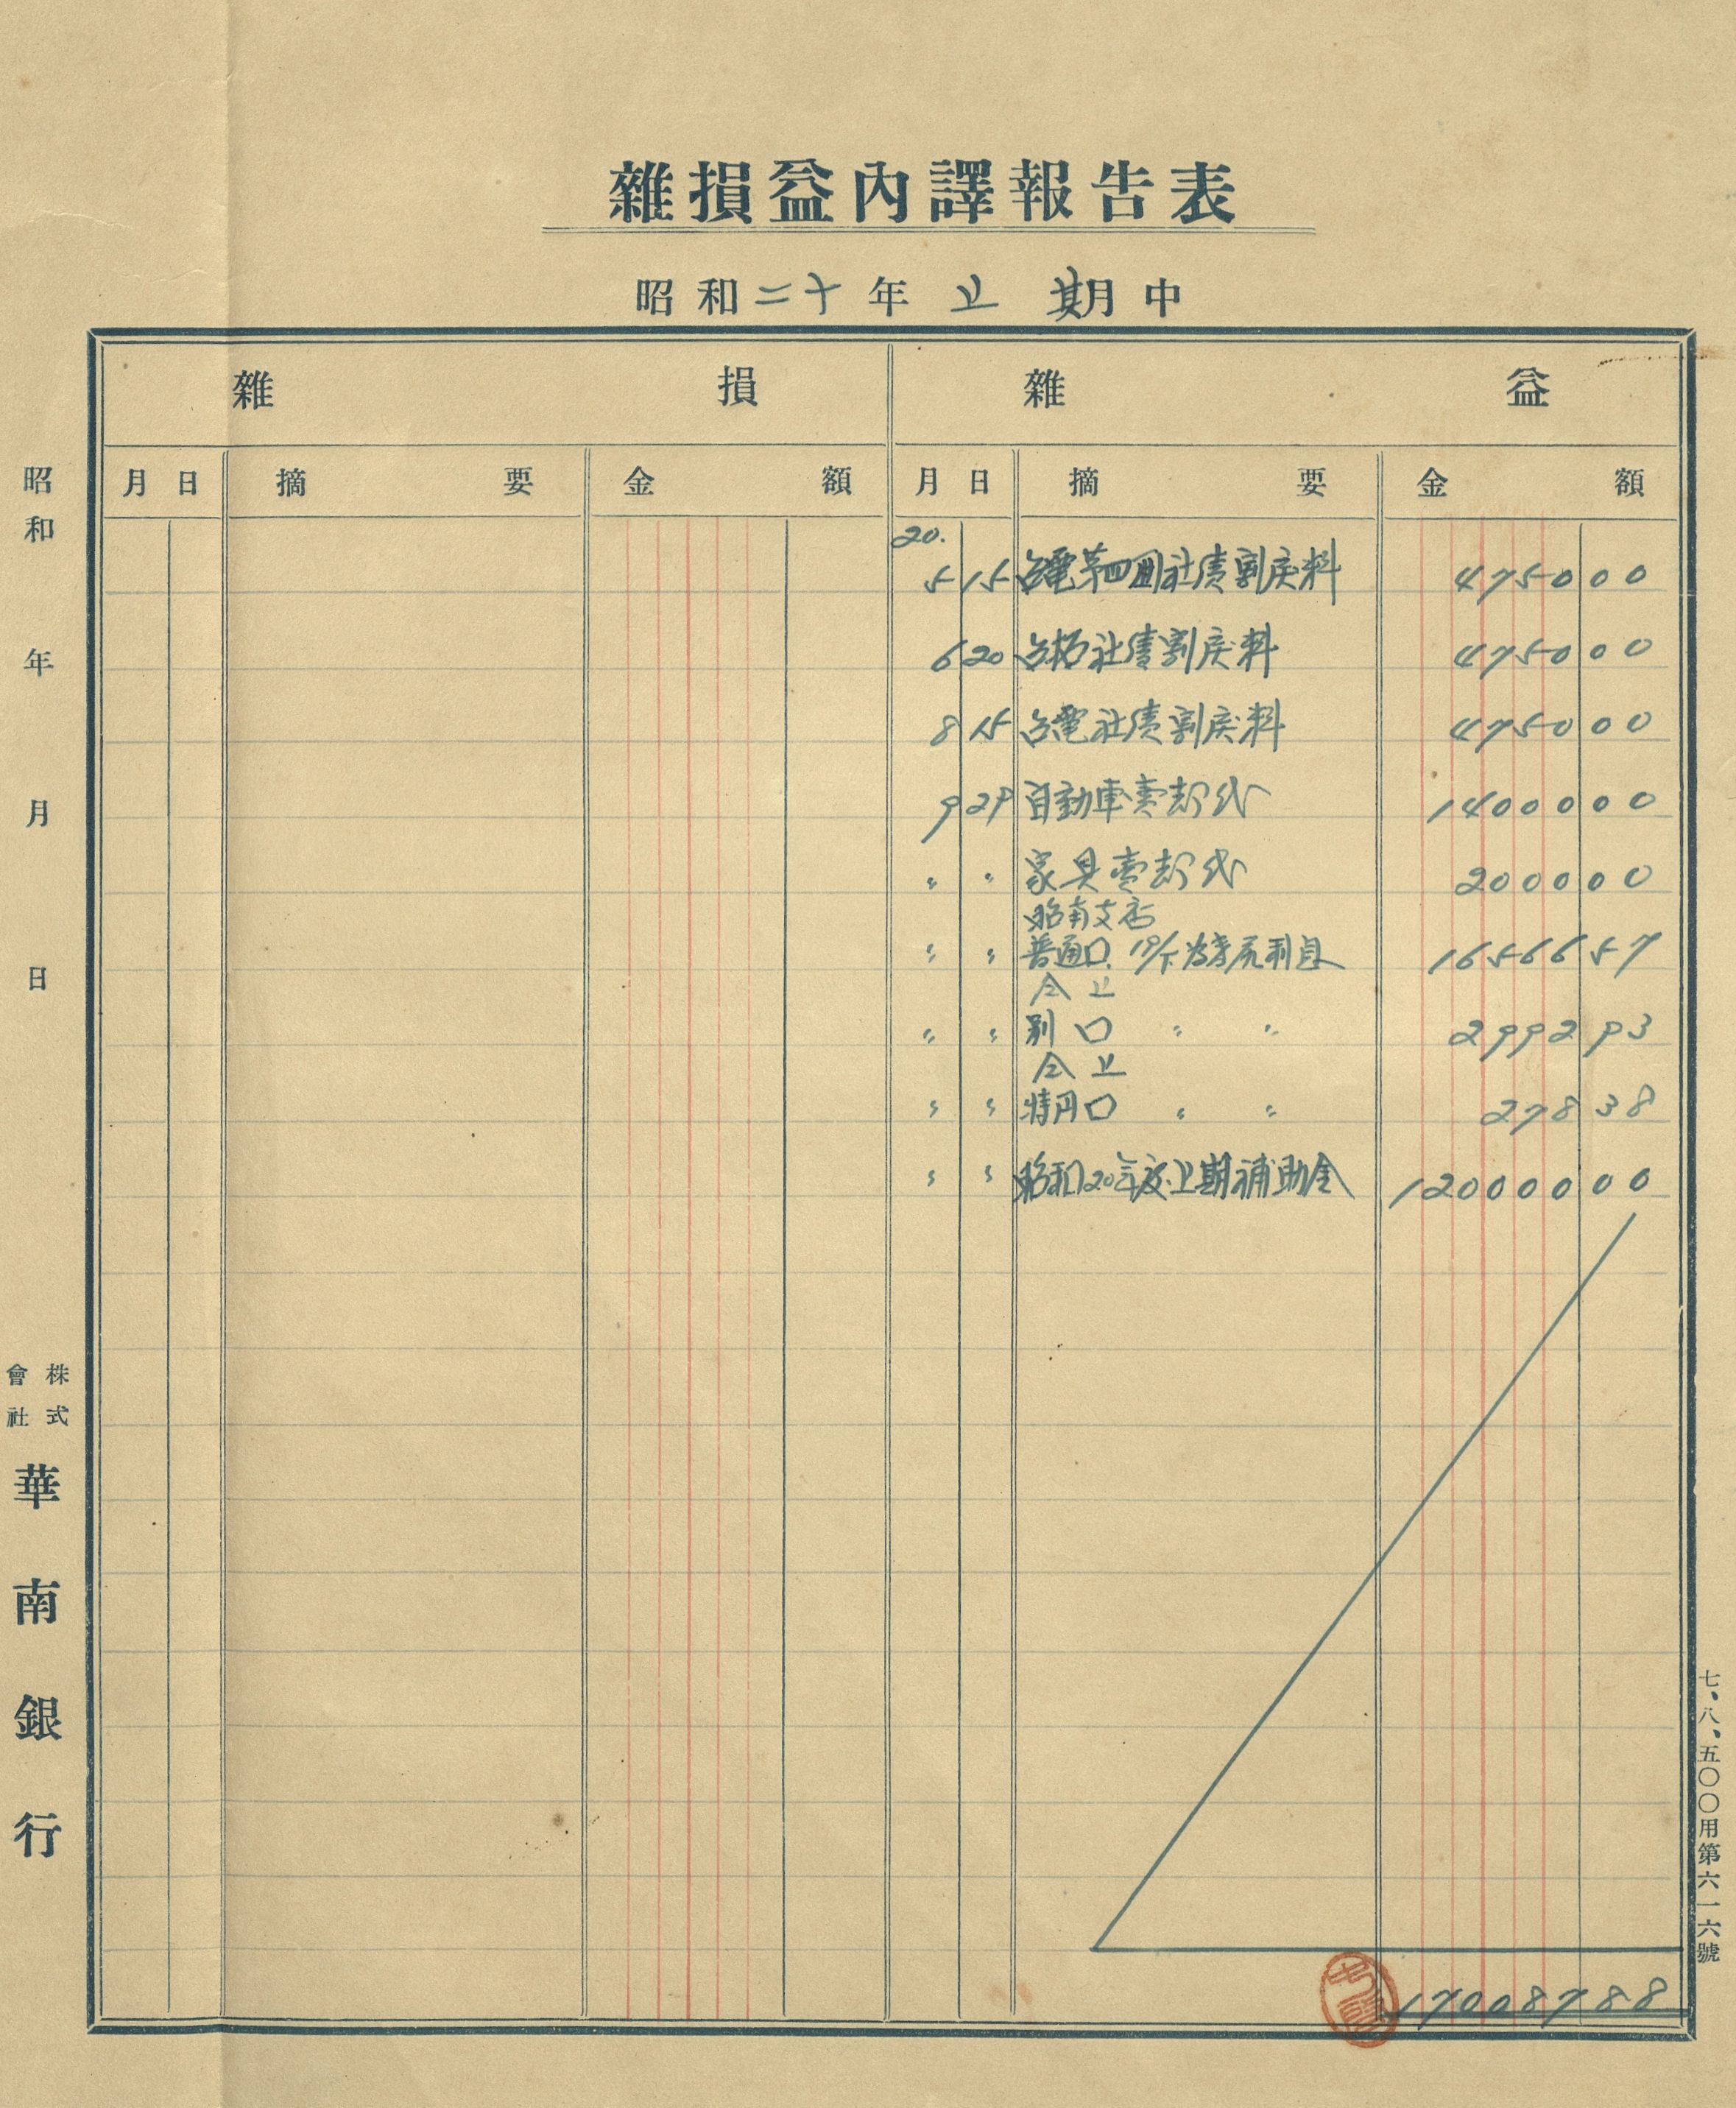 雜損益內譯報告表
昭和二十年上期中
雜損 雜益
月日 摘要 金額 月日 摘要 金額
20.
5 15 台電第四回社債割戾料 4750 00
6 20 台拓社債割戾料 4750 00
8 15 台電社債割戾料 4750 00
9 29 自動車賣却代 14000 00
〃 〃 家具賣却代 2000 00
昭南支店
〃 〃 普通口 19/下 為替尻利息 16566 57
仝上
〃 〃 別口 〃 〃 2992 93
仝上
〃 〃 特円口 〃 〃 278 38
〃 〃 昭和20年度上期補助金 120000 00
170087 88
昭和 年 月 日
株式會社 華南銀行
七、八、五〇〇用第六一六號